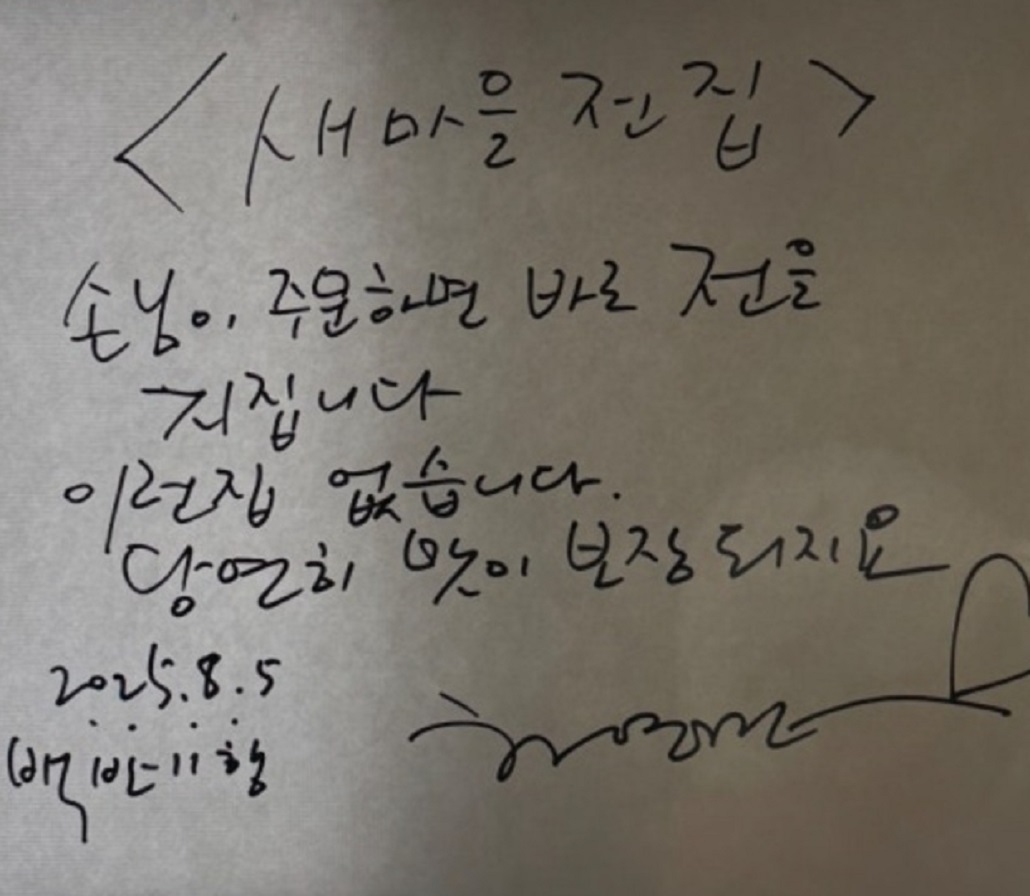 <새마을 전집>
손님이, 주문하면 바로 전을
지집니다
이런집 없습니다.
당연히 맛이 보장 되지요
2025.8.5
백반기행